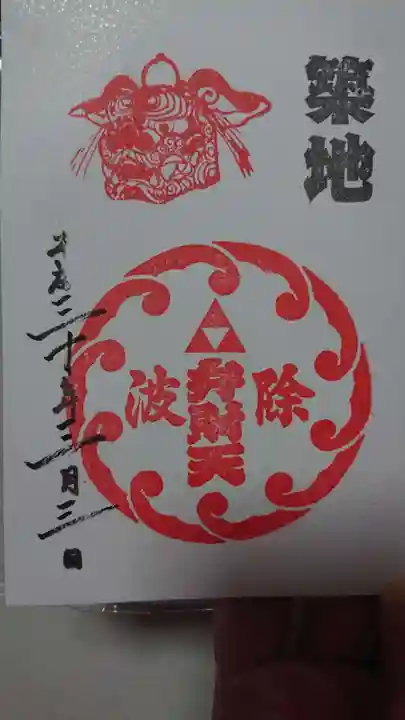 築地
除
弁財天
波
平成三十年三月三日